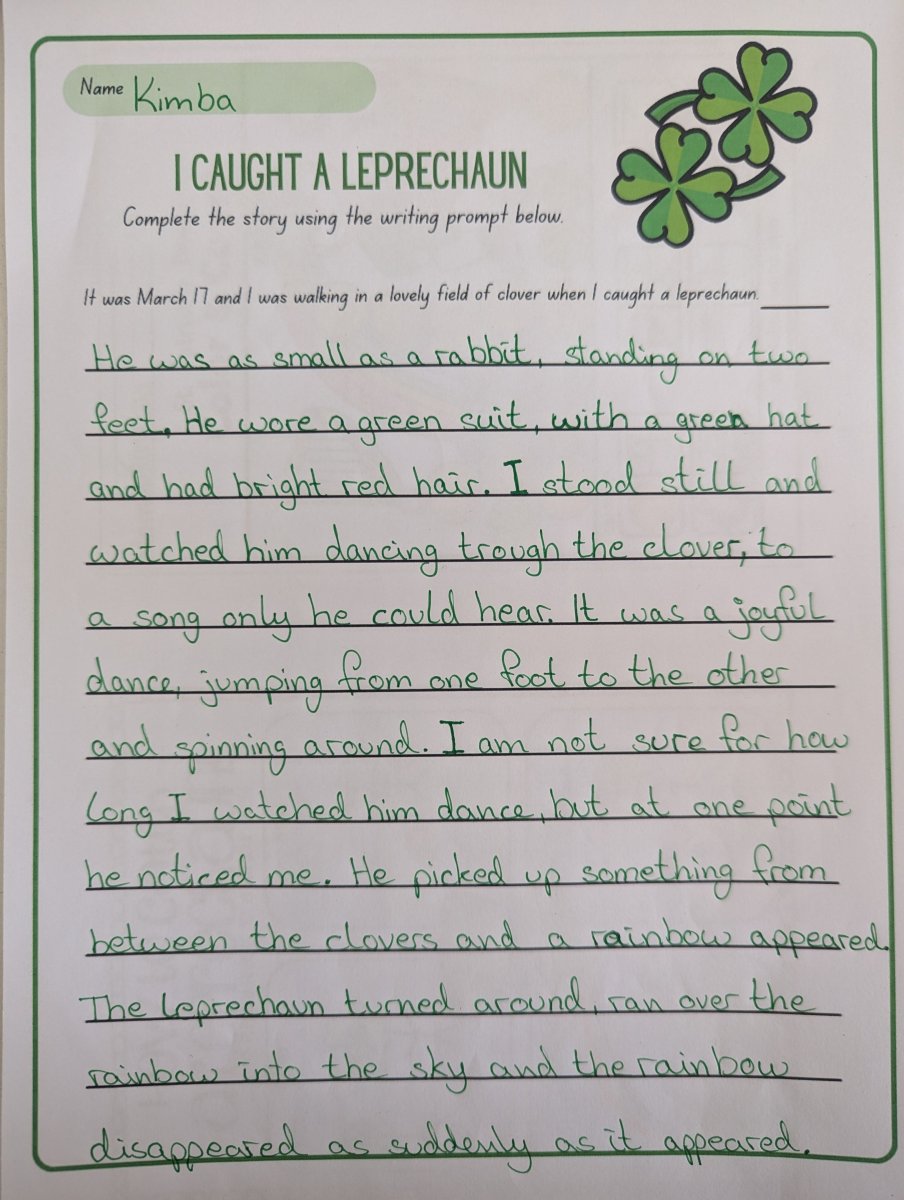 Name Kimba
I CAUGHT A LEPRECHAUN
Complete the story using the writing prompt below.
It was March 17 and I was walking in a lovely field of clover when I caught a leprechaun.
He was as small as a rabbit, standing on two
feet. He wore a green suit, with a green hat
and had bright red hair. I stood still and
watched him dancing trough the clover, to
a song only he could hear. It was a joyful
dance, jumping from one foot to the other
and spinning around. I am not sure for how
long I watched him dance, but at one point
he noticed me. He picked up something from
between the clovers and a rainbow appeared.
The leprechaun turned around, ran over the
rainbow into the sky and the rainbow
disappeared as suddenly as it appeared.